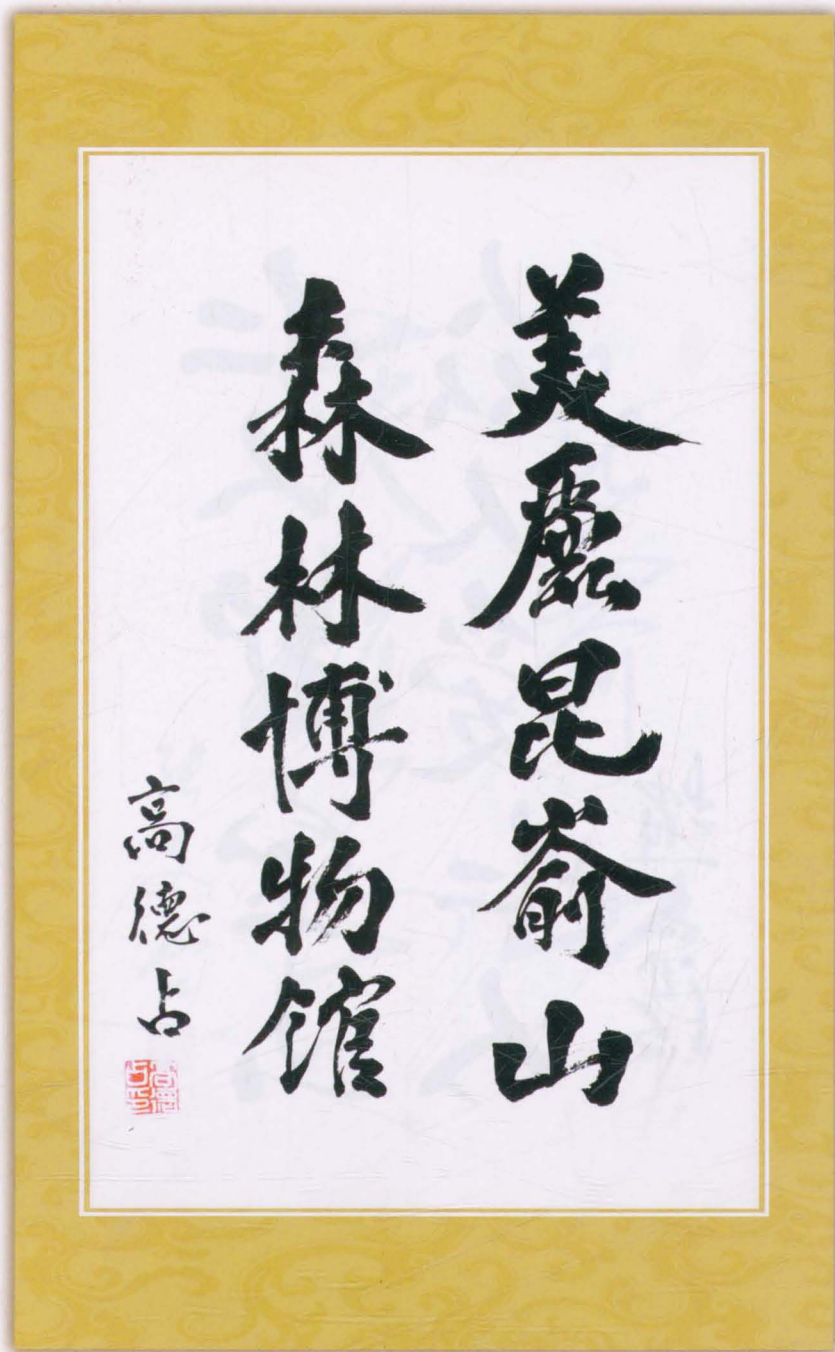 美麗昆嵛山
森林博物馆
高德占